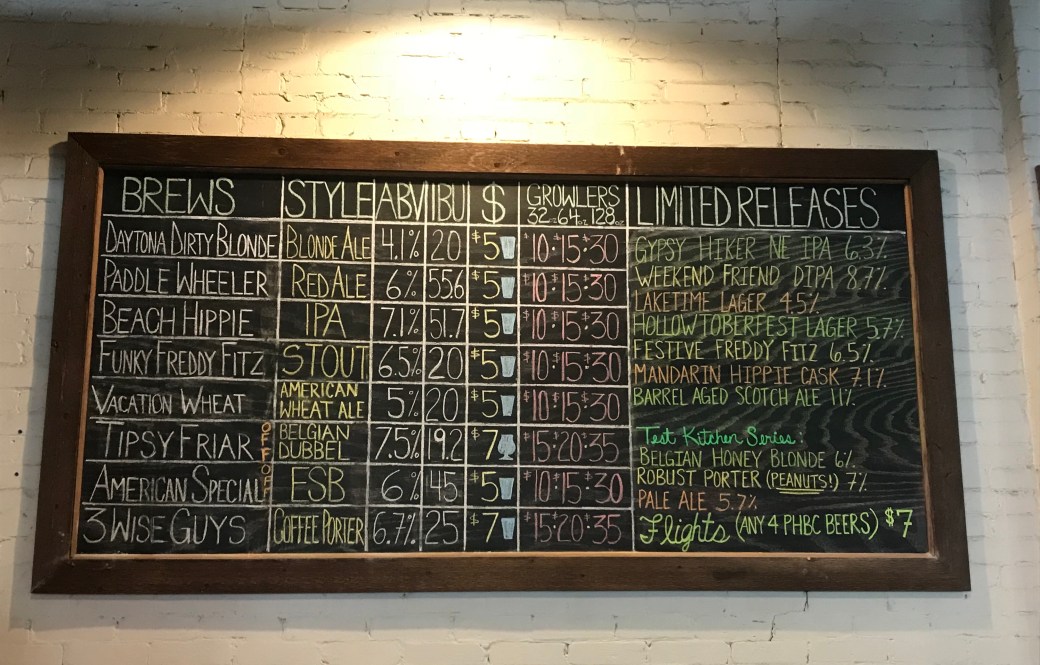 BREWS STYLE ABV IBU $ GROWLERS 32oz 64oz 128oz
DAYTONA DIRTY BLONDE BLONDE ALE 4.1% 20 $5 $10 $15 $30
PADDLE WHEELER RED ALE 6% 55.6 $5 $10 $15 $30
BEACH HIPPIE IPA 7.1% 51.7 $5 $10 $15 $30
FUNKY FREDDY FITZ STOUT 6.5% 20 $5 $10 $15 $30
VACATION WHEAT AMERICAN WHEAT ALE 5% 20 $5 $10 $15 $30
TIPSY FRIAR BELGIAN DUBBEL 7.5% 19.2 $7 $15 $20 $35
AMERICAN SPECIAL ESB 6% 45 $5 $10 $15 $30
3 WISE GUYS COFFEE PORTER 6.7% 25 $7 $15 $20 $35
LIMITED RELEASES
GYPSY HIKER NE IPA 6.3%
WEEKEND FRIEND DIPA 8.7%
LAKETIME LAGER 4.5%
HOLLOWTOBERFEST LAGER 5.7%
FESTIVE FREDDY FITZ 6.5%
MANDARIN HIPPIE CASK 7.1%
BARREL AGED SCOTCH ALE 11%
Test Kitchen Series:
BELGIAN HONEY BLONDE 6%
ROBUST PORTER (PEANUTS!) 7%
PALE ALE 5.7%
Flights (ANY 4 PHBC BEERS) $7